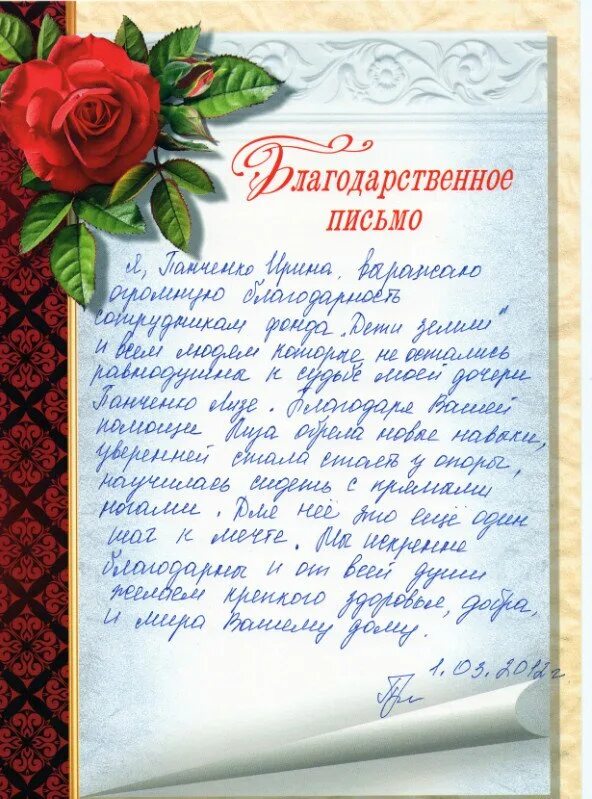 Благодарственное
письмо
Я, Панченко Ирина, выражаю
огромную благодарность
сотрудникам фонда „Дети земли"
и всем людям которые не остались
равнодушны к судьбе моей дочери
Панченко Лизе. Благодаря Вашей
помощи Лиза обрела новые навыки,
уверенней стала стоять у опоры,
научилась сидеть с прямыми
ногами. Для неё это ещё один
шаг к мечте. Мы искренне
благодарны и от всей души
желаем крепкого здоровья, добра,
и мира Вашему дому.
1.03.2012г